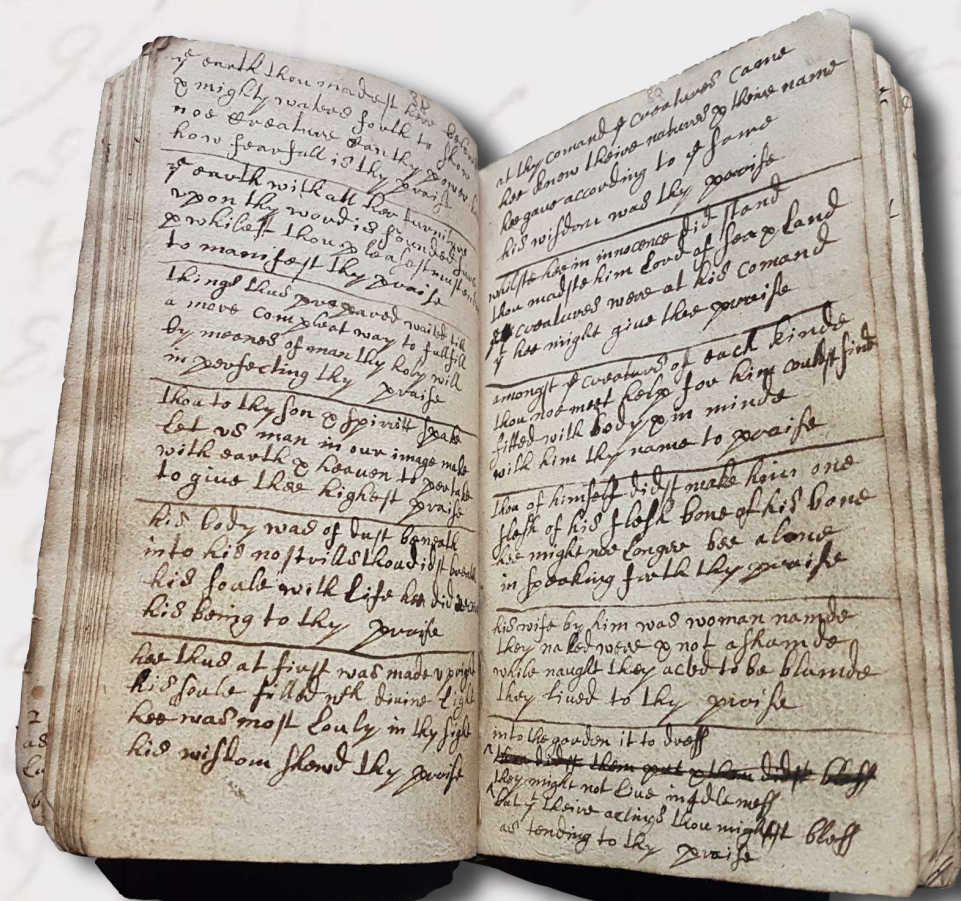 38
ye earth thou madest here below
& mighty waters forth to show
noe Creature Can thy power
how fearfull is thy praise
ye earth with all her furniture
upon thy word is founded sure
& whilest thou pleasest must endure
to manifest thy praise
things thus prepared waited till
a more compleat way to fulfill
by meanes of man thy holy will
in perfecting thy praise
thou to thy son & spiritt spake
Let us man in our image make
with earth & heaven to pertake
to give thee highest praise
his body was of dust beneath
into his nostrills thou didst breath
his soule with Life hee did
his being to thy praise
hee thus at first was made upright
his soule filled wth divine Light
hee was most Louly in thy sight
his wisdom shewd thy praise
39
at thy comand ye Creatures came
hee knew theire natures & theire name
hee gave according to ye same
his wisdom was thy praise
whilste hee in innocence did stand
thou madste him Lord of sea & Land
ye creatures were at his comand
yt hee might give thee praise
amongst ye Creatures of each kinde
thou noe meet help for him couldst find
fitted with body & in minde
with him thy name to praise
thou of himself didst make him one
flesh of his flesh bone of his bone
hee might noe Longer bee alone
in speaking forth thy praise
his wife by him was woman namde
they naked were & not ashamde
while naught they acted to be blamde
they lived to thy praise
into the garden it to dress
thou didst them put & thou didst bless
they might not live in idleness
but yt theire actings thou mightst bless
as tending to thy praise